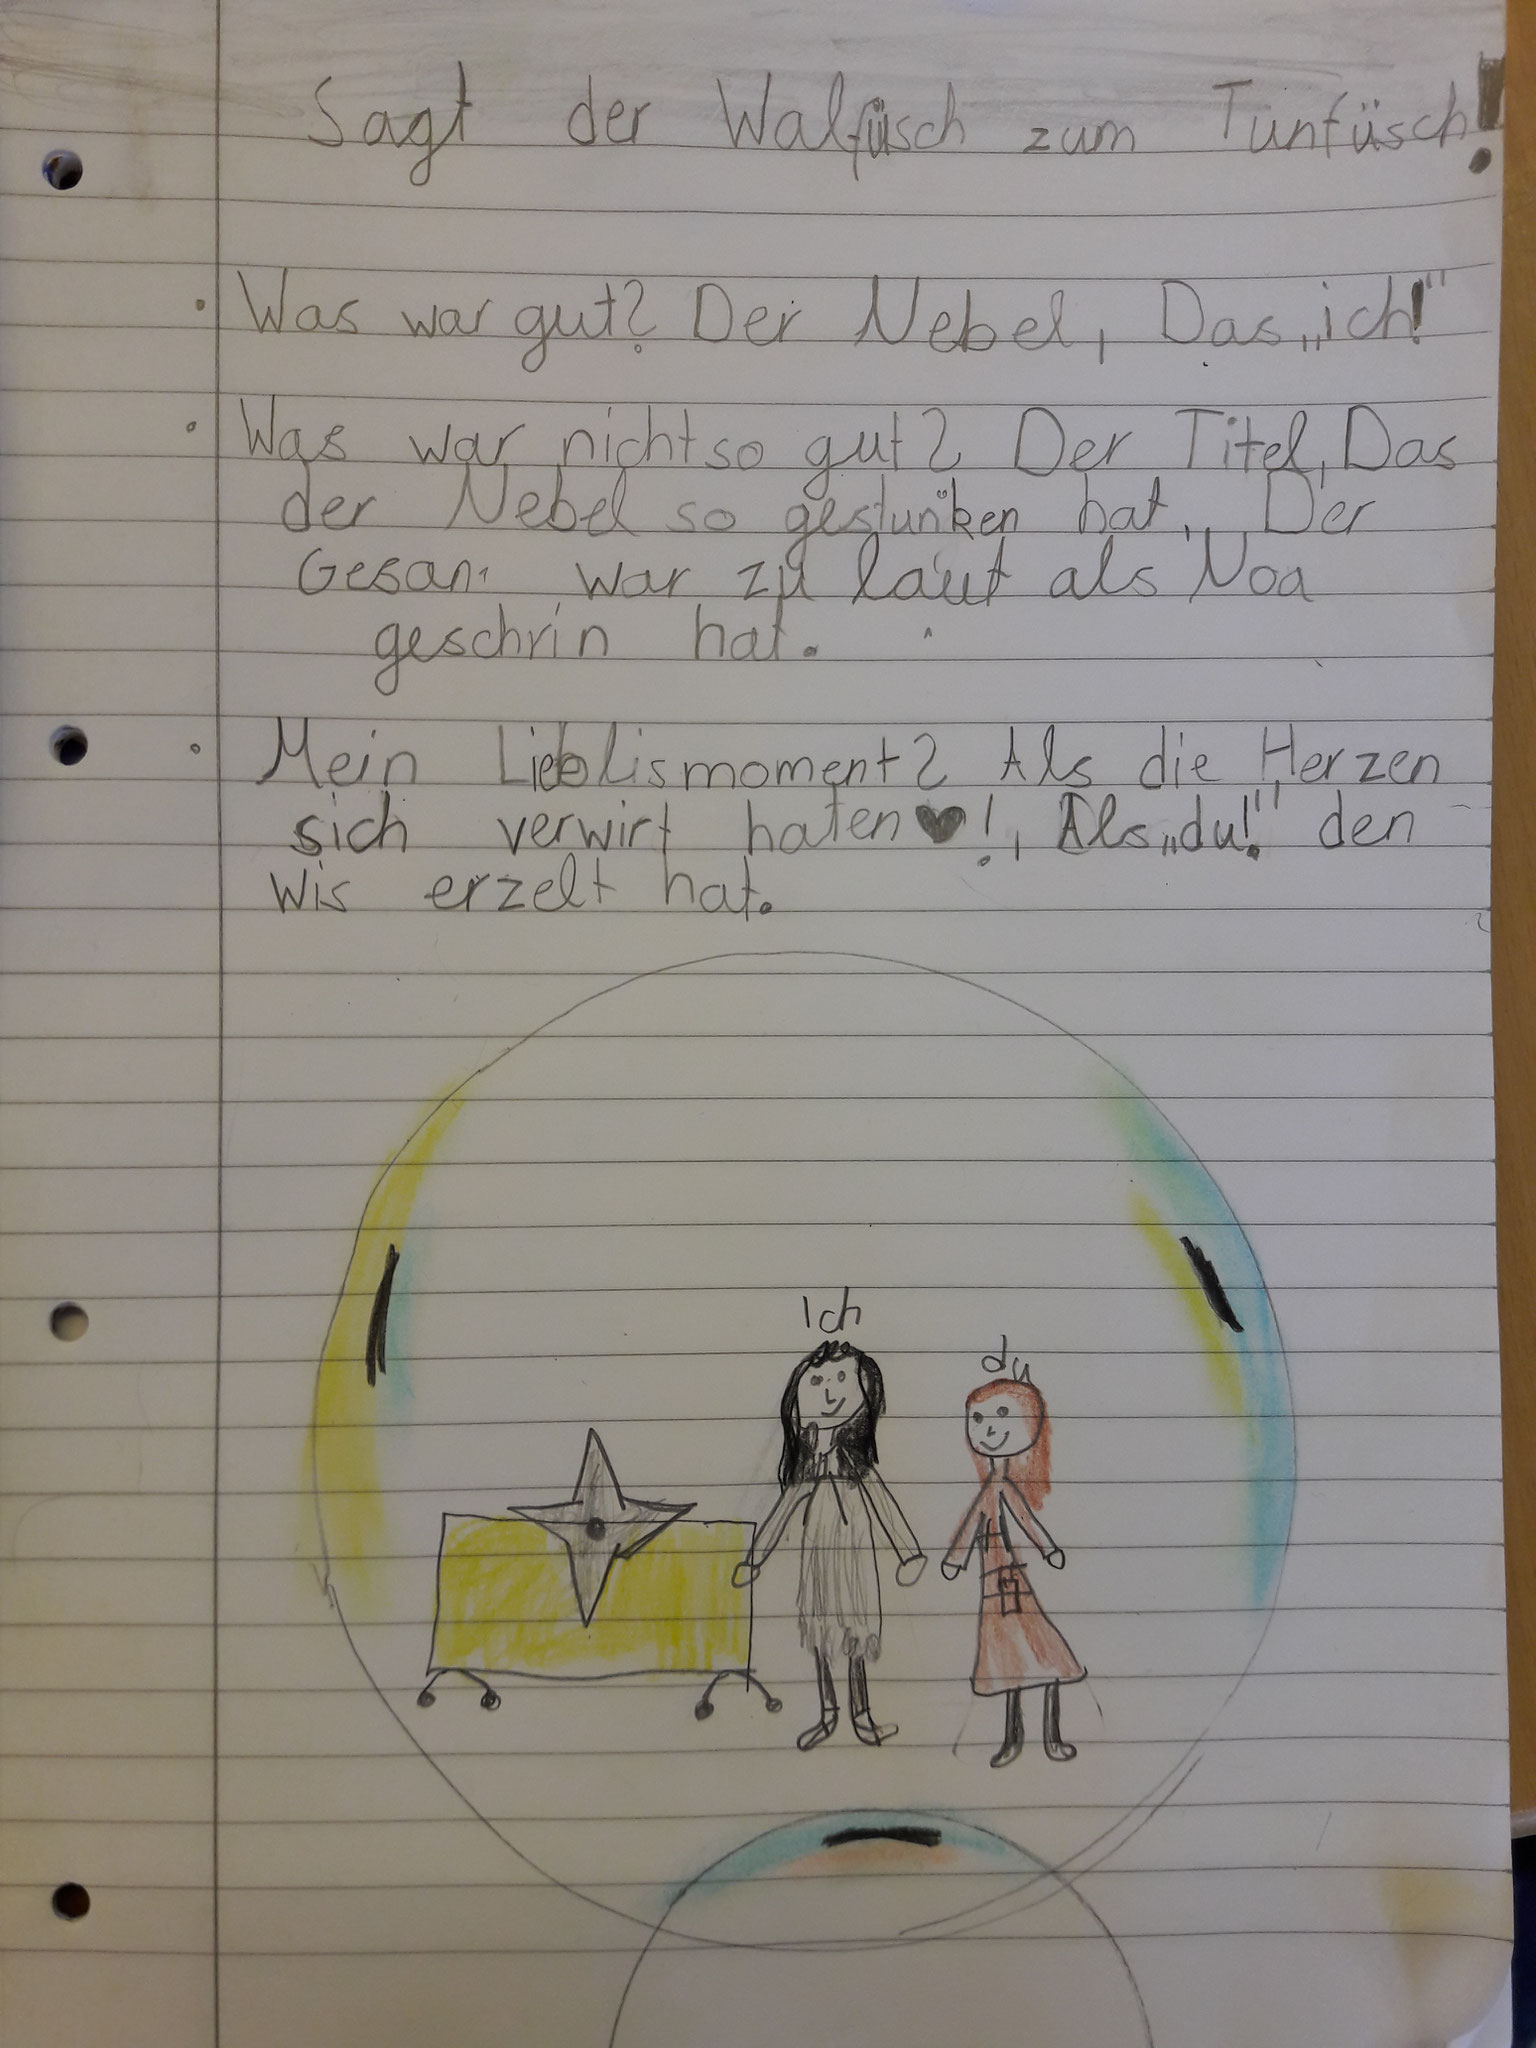 Sagt der Walfüsch zum Tunfüsch!
· Was war gut? Der Nebel, Das „ich!"
· Was war nicht so gut? Der Titel, Das
der Nebel so gestunken hat, Der
Gesan war zu laut als Noa
geschrin hat.
· Mein Lieblismoment? Als die Herzen
sich verwirt haten ♥!, Als „du!" den
wis erzelt hat.
Ich
du